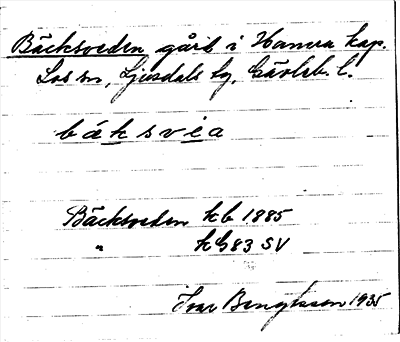 Bäcksveden gård i Hamra kap.
Los sn, Ljusdals tg, Gävleb. l.
bäksvea
Bäcksveden kb 1885
" kG83 SV
Ivar Bengtsson 1935